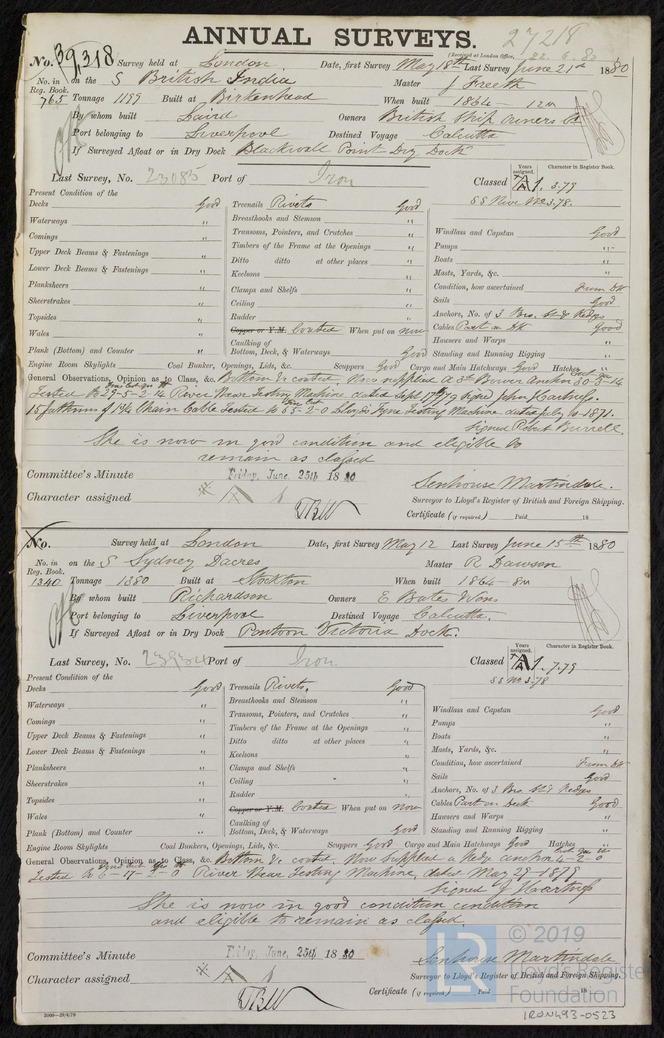 ANNUAL SURVEYS.
27218
No. 39,318 Survey held at London Date, first Survey May 18th Last Survey June 21st 1880
(Received at London Office, 22.6.80
No. in Reg. Book. 765 on the S British India Master J Freeth
Tonnage 1199 Built at Birkenhead When built 1864 - 12m
By whom built Laird Owners British Ship Owners Co
Port belonging to Liverpool Destined Voyage Calcutta
If Surveyed Afloat or in Dry Dock Blackwall Point Dry Dock
Last Survey, No. 23085 Port of Iron Classed A1. 3.79
Years assigned. Character in Register Book.
SS No 3.78.
Present Condition of the
Decks Good Treenails Rivets Good
Waterways " Breasthooks and Stemson "
Comings " Transoms, Pointers, and Crutches " Windlass and Capstan Good
Upper Deck Beams & Fastenings " Timbers of the Frame at the Openings " Pumps "
Lower Deck Beams & Fastenings " Ditto ditto at other places " Boats "
Planksheers " Keelsons " Masts, Yards, &c. "
Sheerstrakes " Clamps and Shelfs " Condition, how ascertained From Dk
Topsides " Ceiling " Sails Good
Wales " Rudder " Anchors, No. of 3 Bro. St & Kedges
Copper or Y.M. Coated When put on now Cables Part on Dk Good
Plank (Bottom) and Counter " Caulking of Bottom, Deck, & Waterways Good Hawsers and Warps "
Standing and Running Rigging "
Engine Room Skylights Coal Bunker, Openings, Lids, &c. Scuppers Good Cargo and Main Hatchways Good Hatches
General Observations, Opinion as to Class, &c. Bottom &c coated. Now supplied A 3rd Bower Anchor 30-3-14
Tested to 29-5-2-14 River Wear Testing Machine dated Sept 17th/79 signed John Hartness.
15 fathoms of 1 3/4 Chain Cable Tested to 55-2-0 Tyne Testing Machine dated July 10-1871.
Signed Robert Burrell.
She is now in good condition and eligible to
remain as classed
Committee's Minute Friday, June, 25th 1880
Character assigned A 1
Senhouse Martindale.
Surveyor to Lloyd's Register of British and Foreign Shipping.
Certificate (if required) Paid 18
No. Survey held at London Date, first Survey May 12 Last Survey June 15th 1880
No. in Reg. Book. 1340 on the S Sydney Dacres Master R Dawson
Tonnage 1380 Built at Stockton When built 1864 8m
By whom built Richardson Owners E Bates & Sons
Port belonging to Liverpool Destined Voyage Calcutta.
If Surveyed Afloat or in Dry Dock Pontoon Victoria Dock.
Last Survey, No. 23934 Port of Iron Classed A1. 7.79
Years assigned. Character in Register Book.
SS No 3.78
Present Condition of the
Decks Good Treenails Rivets. Good
Waterways " Breasthooks and Stemson "
Comings " Transoms, Pointers, and Crutches " Windlass and Capstan Good
Upper Deck Beams & Fastenings " Timbers of the Frame at the Openings " Pumps "
Lower Deck Beams & Fastenings " Ditto ditto at other places " Boats "
Planksheers " Keelsons " Masts, Yards, &c. "
Sheerstrakes " Clamps and Shelfs " Condition, how ascertained From Dk
Topsides " Ceiling " Sails Good
Wales " Rudder " Anchors, No. of 3 Bro. St & Kedges
Copper or Y.M. Coated When put on now Cables Part on deck Good
Plank (Bottom) and Counter " Caulking of Bottom, Deck, & Waterways Good Hawsers and Warps "
Standing and Running Rigging "
Engine Room Skylights Coal Bunkers, Openings, Lids, &c. Scuppers Good Cargo and Main Hatchways Good Hatches
General Observations, Opinion as to Class, &c. Bottom &c coated. Now supplied a Kedge anchor 4-2-0
Tested to 6-17-2-0 River Wear Testing Machine, dated May 29-1879
Signed J Hartness
She is now in good condition condition
and eligible to remain as classed.
Committee's Minute Friday, June, 25th 1880
Character assigned A 1
Senhouse Martindale
Surveyor to Lloyd's Register of British and Foreign Shipping.
Certificate (if required) Paid 18
© 2019
Lloyds Register
Foundation
LR
IRON493-0523